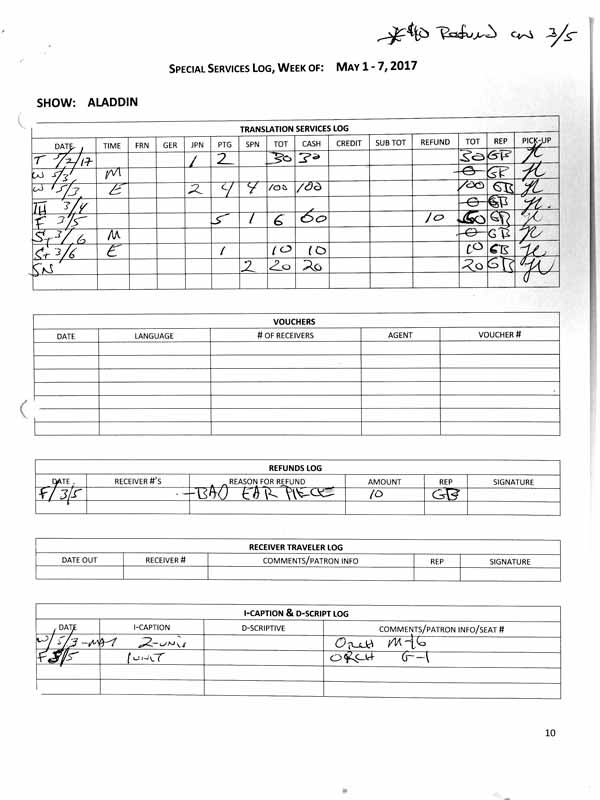 * $10 Refund on 3/5
SPECIAL SERVICES LOG, WEEK OF: MAY 1 - 7, 2017
SHOW: ALADDIN
TRANSLATION SERVICES LOG
DATE TIME FRN GER JPN PTG SPN TOT CASH CREDIT SUB TOT REFUND TOT REP PICK-UP
T 5/2/17 1 2 30 30 30 GB
W 5/3 M 0 GB
W 5/3 E 2 4 4 100 100 100 GB
TH 3/4 0 GB
F 3/5 5 1 6 60 10 60 GB
ST 3/6 M 0 GB
ST 3/6 E 1 10 10 10 GB
SN 2 20 20 20 GB
VOUCHERS
DATE LANGUAGE # OF RECEIVERS AGENT VOUCHER #
REFUNDS LOG
DATE RECEIVER #'S REASON FOR REFUND AMOUNT REP SIGNATURE
F/3/5 -BAD EAR PIECE 10 GB
RECEIVER TRAVELER LOG
DATE OUT RECEIVER # COMMENTS/PATRON INFO REP SIGNATURE
I-CAPTION & D-SCRIPT LOG
DATE I-CAPTION D-SCRIPTIVE COMMENTS/PATRON INFO/SEAT #
W/5/3-MAT 2-UNIT ORCH M-16
F 5/5 1UNIT ORCH G-1
10